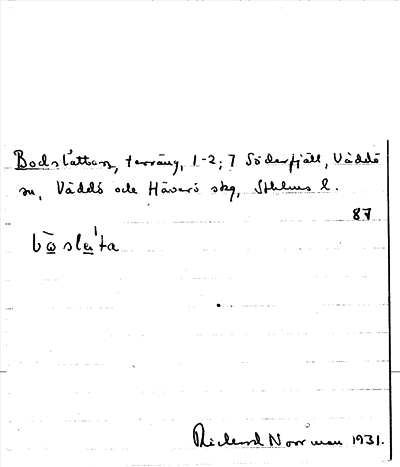 Bodslåttan, terräng, 1-2; 7 Söderfjäll, Väddö
sn, Väddö och Häverö skg, Sthlms l.
87
Richard Norrman 1931.